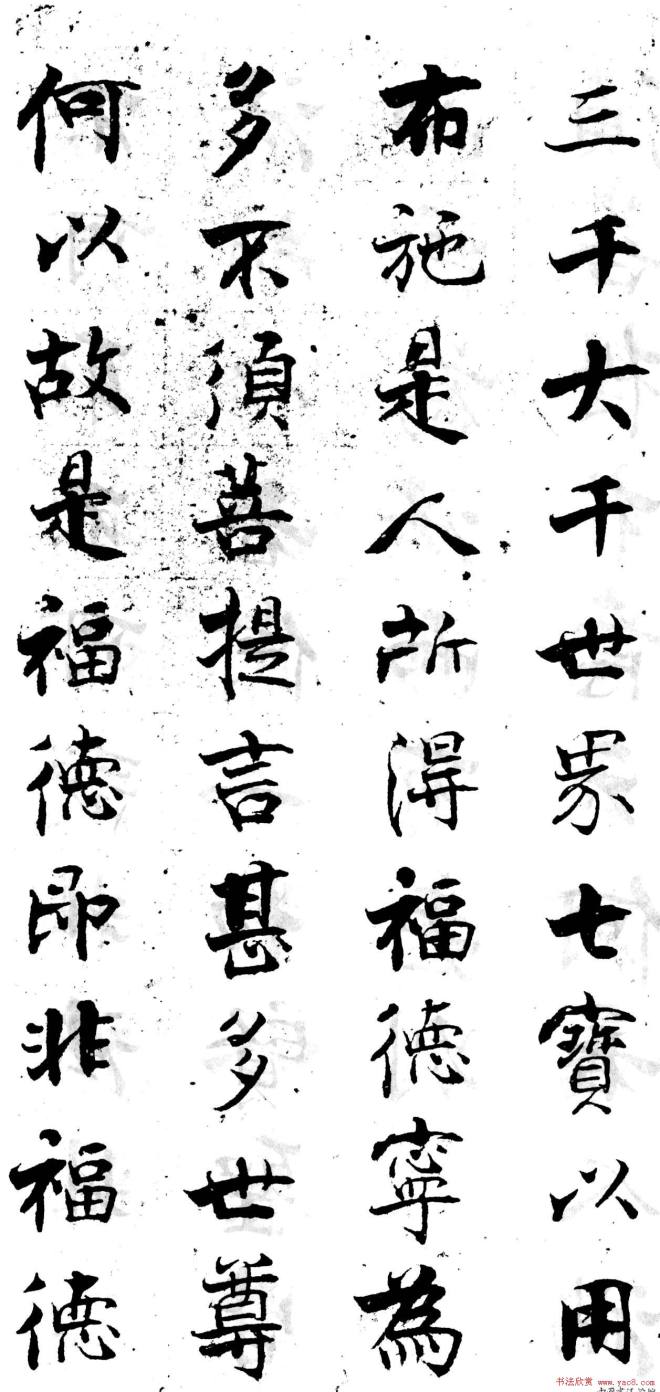 三千大千世界七寶以用
布施是人所得福德寧為
多不須菩提言甚多世尊
何以故是福德即非福德
书法欣赏 www.yac8.com